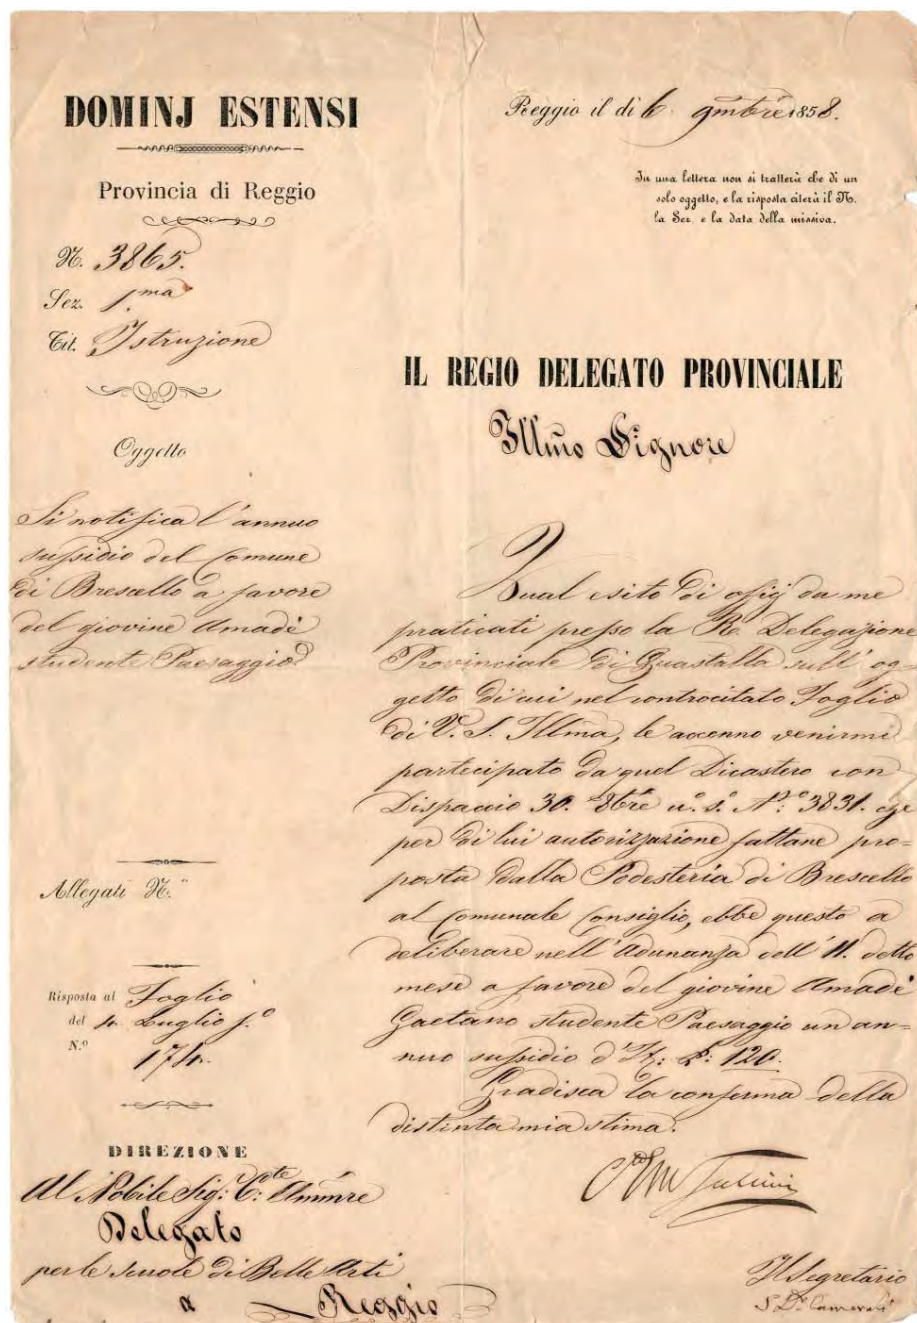 DOMINJ ESTENSI
Provincia di Reggio
N. 3865.
Sez. 1.ma
Tit. Istruzione
Oggetto
Si notifica l'annuo
sussidio del Comune
di Brescello a favore
del giovine Amadè
studente Paesaggio
Allegati N.
Risposta al Foglio
del 4. Luglio p.o
N.o 174.
DIREZIONE
Al Nobile Sig: C:te Ammre
Delegato
per le scuole di Belle Arti
a Reggio
Reggio il dì 6. 9mbre 1858.
In una lettera non si tratterà che di un
solo oggetto, e la risposta citerà il N.
la Sez. e la data della missiva.
IL REGIO DELEGATO PROVINCIALE
Illmo Signore
Qual esito di offizj da me
praticati presso la R. Delegazione
Provinciale di Guastalla sull'og-
getto di cui nel controcitato Foglio
di V. S. Illma, le accenno venirmi
partecipato da quel Dicastero con
Dispaccio 30. 8bre u.o s.o N.o 3831. che
per di lui autorizzazione fattane pro-
posta dalla Podesteria di Brescello
al Comunale Consiglio, ebbe questo a
deliberare nell'Adunanza dell'11. detto
mese a favore del giovine Amadè
Gaetano studente Paesaggio un an-
nuo sussidio d'It: L: 120.
Gradisca la conferma della
distinta mia stima.
Il Segretario